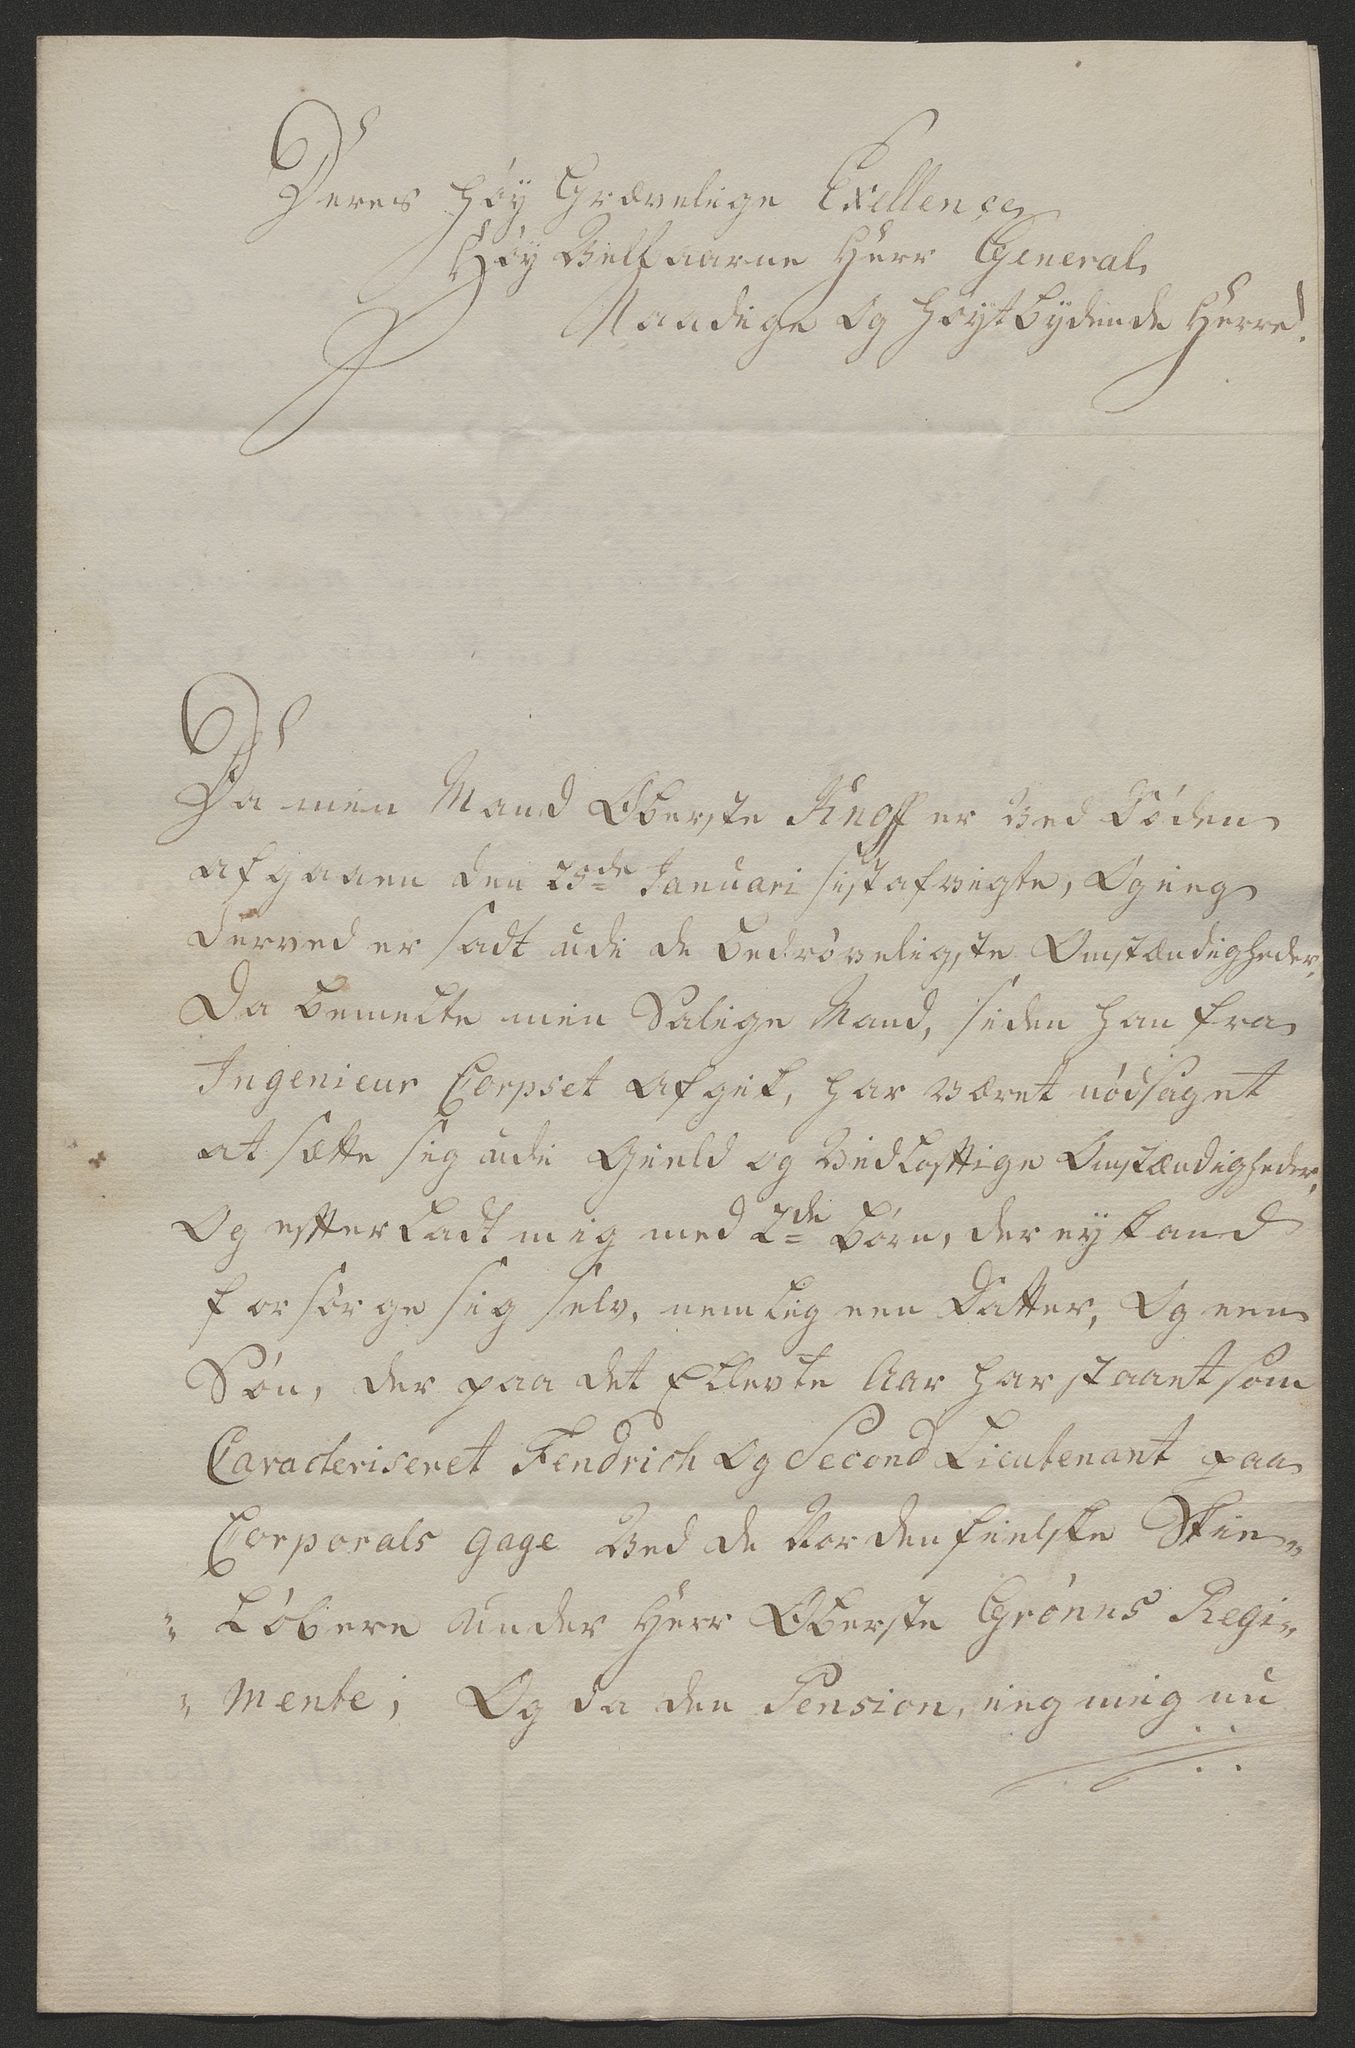 Deres Høy Grævelige Exellence
Høy Velbaarne Herr General
Naadige og høystbydende Herre!
Da min Mand Oberste Knoff er ved Døden
afgaaen den 25de Januari sistafvigte, Og ieg
derved er sadt udi de bedrøveligste Omstændigheder,
Da bemelte min Salige Mand, siden han fra
Ingenieur Corpset afgik, har været nødsaget
at sætte sig udi Gield og Vidløfftige Omstændigheder,
Og effterladt mig med 2de Børn, der ey kand
forsørge sig selv, nemlig een Datter, Og een
Søn, der paa det Ellevte Aar har staaet som
Caracteriseret Fendrich og Second Lieutenant paa
Corporals gage Ved de Nordenfielske Skie-
" Løbere under Herr Oberste Grønns Regi-
" mente; Og da den Pension, ieg mig nu